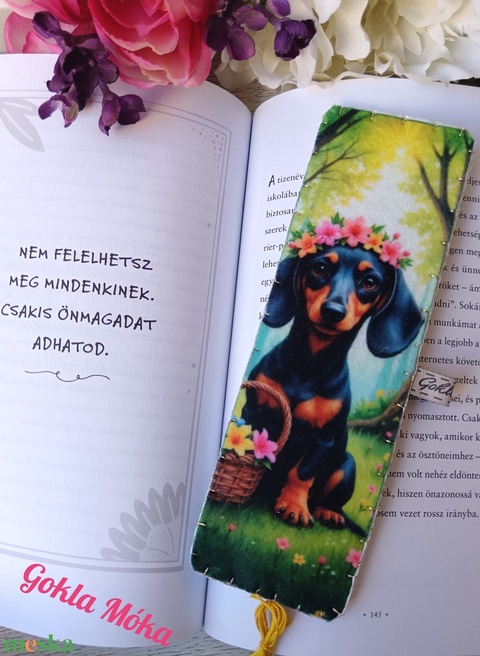 NEM FELELHETSZ
MEG MINDENKINEK.
CSAKIS ÖNMAGADAT
ADHATOD.
A tizenév
iskolába
biztosar
szerek
rier-p
lehet
egy
és az
ehetség
gen meg
z és ünne
röket – ám
udni". Soká
munkámat a
en a legjobb a
nternetes követő
zeltek
sei, és p
nyomasztott. Csak
ki vagyok, amikor k
és az ösztöneimhez –
nem volt nehéz eldönten
ék, hiszen önazonossá vá
osem vezet rossz irányba.
• 145 •
Gokl
Gokla Móka
meska